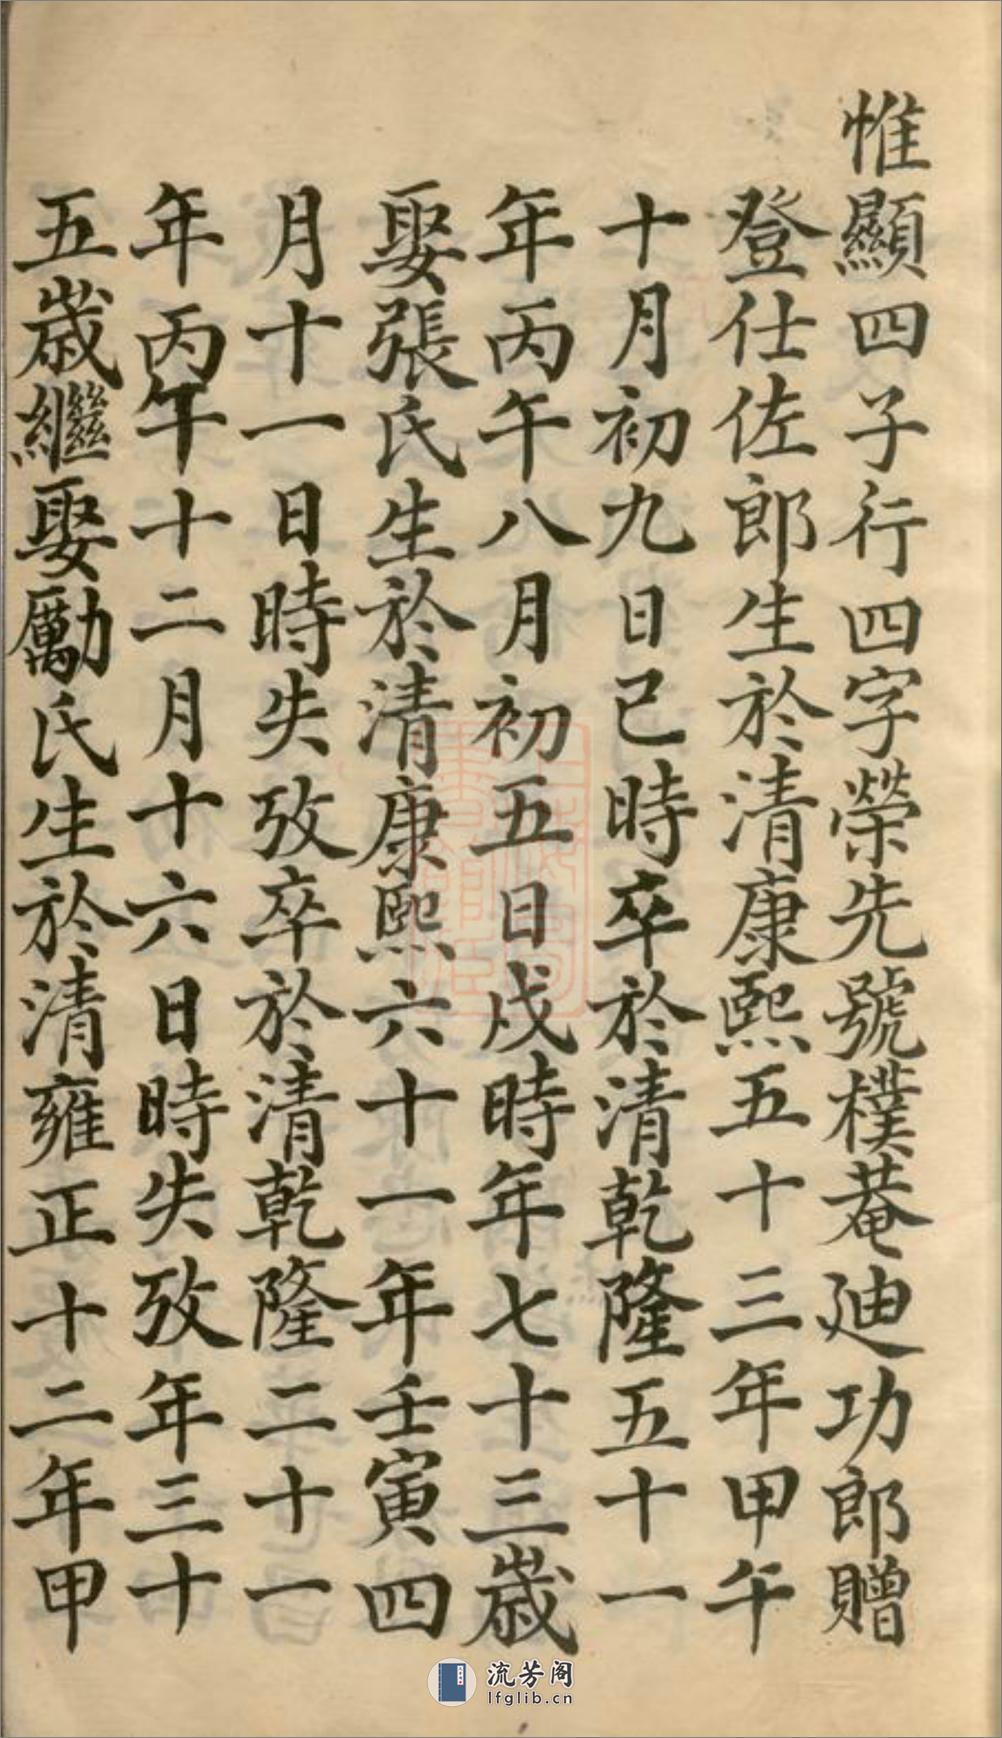 惟顯四子行四字榮先號樸菴迪功郎贈
登仕佐郎生於清康熙五十三年甲午
十月初九日巳時卒於清乾隆五十一
年丙午八月初五日戌時年七十三歲
娶張氏生於清康熙六十一年壬寅四
月十一日時失攷卒於清乾隆二十一
年丙午十二月十六日時失攷年三十
五歲繼娶勵氏生於清雍正十二年甲
流芳阁
lfglib.cn